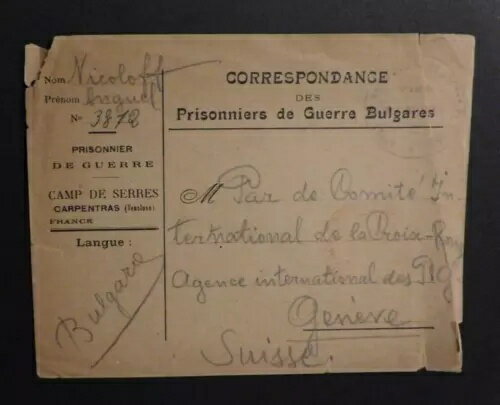 Nom Nicoloff
Prénom
No 3872
PRISONNIER
DE GUERRE
CAMP DE SERRES
CARPENTRAS (Vaucluse)
FRANCE
Langue :
Bulgare
CORRESPONDANCE
DES
Prisonniers de Guerre Bulgares
M Par de Comité In-
ternational de la Croix-Rouge
Agence international des P.G
Genève
Suisse.